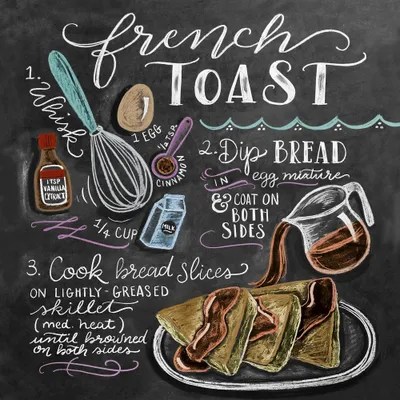 french
TOAST
1. Whisk
1 EGG
1/2 TSP. CINNAMON
1 TSP
VANILLA
EXTRACT
1/4 CUP
MILK
2. Dip BREAD
IN egg mixture
& COAT ON
BOTH
SIDES
3. Cook bread slices
ON LIGHTLY-GREASED
skillet
(med. heat)
until browned
on both sides